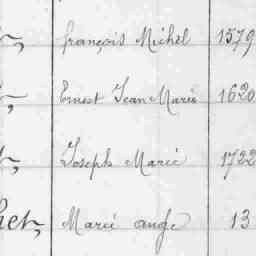 françois Michel 1579
Ernest Jean Marie 1620
Joseph Marie 1722
het, Marie ange 13